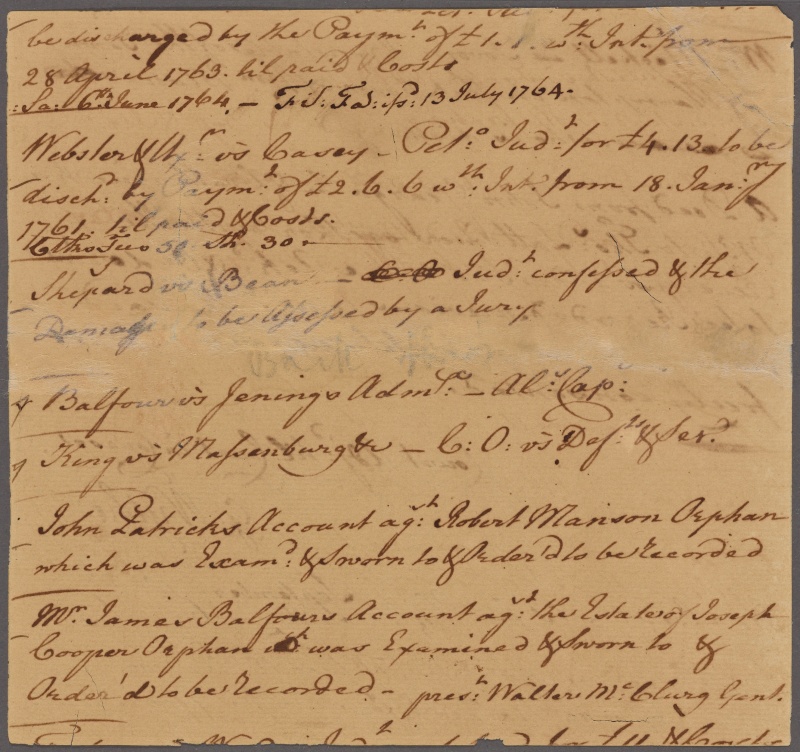 be discharged by the Paym.t of £1.1. wth. Int. from
28 April 1763. til paid & Costs
:Sa: 6th June 1764. – Fi: Fa: iss: 13 July 1764.
Webster & Ux.r vs Casey – Pet.o Jud.t for £4.13. to be
disch.d by Paym.t of £2.6.6 wth. Int. from 18. Jan.ry
1761. til paid & Costs.
50 Th. 30.
Shepard vs Bean – Jud.t confessed & the
Damage to be Assessed by a Jury
Balfour vs Jenings Adm.r – Al.s Cap:
King vs Massenburg &c – C: O: vs Def.ts & Ser.d
John Patricks Account ag.t Robert Manson Orphan
which was Exam.d & Sworn to & Order'd to be recorded
Mr. James Balfours Account ag.t the Estate of Joseph
Cooper Orphan was Examined & Sworn to &
Order'd to be recorded – pres.t Walter Mc.Clurg Gent.